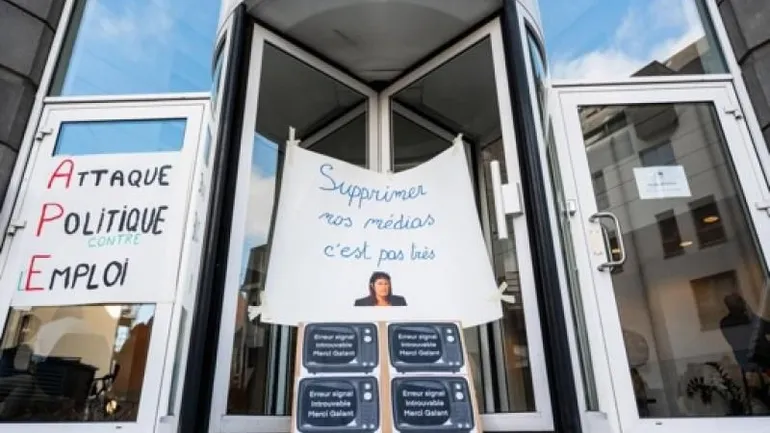 ATTAQUE
POLITIQUE
CONTRE
L'EMPLOI
Supprimer
nos médias
c'est pas très
Erreur signal
Introuvable
Merci Galant
Erreur signal
Introuvable
Merci Galant
Erreur signal
Introuvable
Merci Galant
Erreur signal
Introuvable
Merci Galant